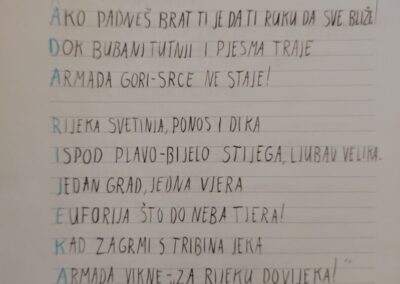 AKO PADNEŠ BRAT TI JE DATI RUKU DA SVE BLIŽE!
DOK BUBANJ TUTNJI I PJESMA TRAJE
ARMADA GORI-SRCE NE STAJE!
RIJEKA SVETINJA, PONOS I DIKA
ISPOD PLAVO-BIJELO STIJEGA, LJUBAV VELIKA.
JEDAN GRAD, JEDNA VJERA
EUFORIJA ŠTO DO NEBA TJERA!
KAD ZAGRMI S TRIBINA JEKA
ARMADA VIKNE-„ZA RIJEKU DOVIJEKA!"